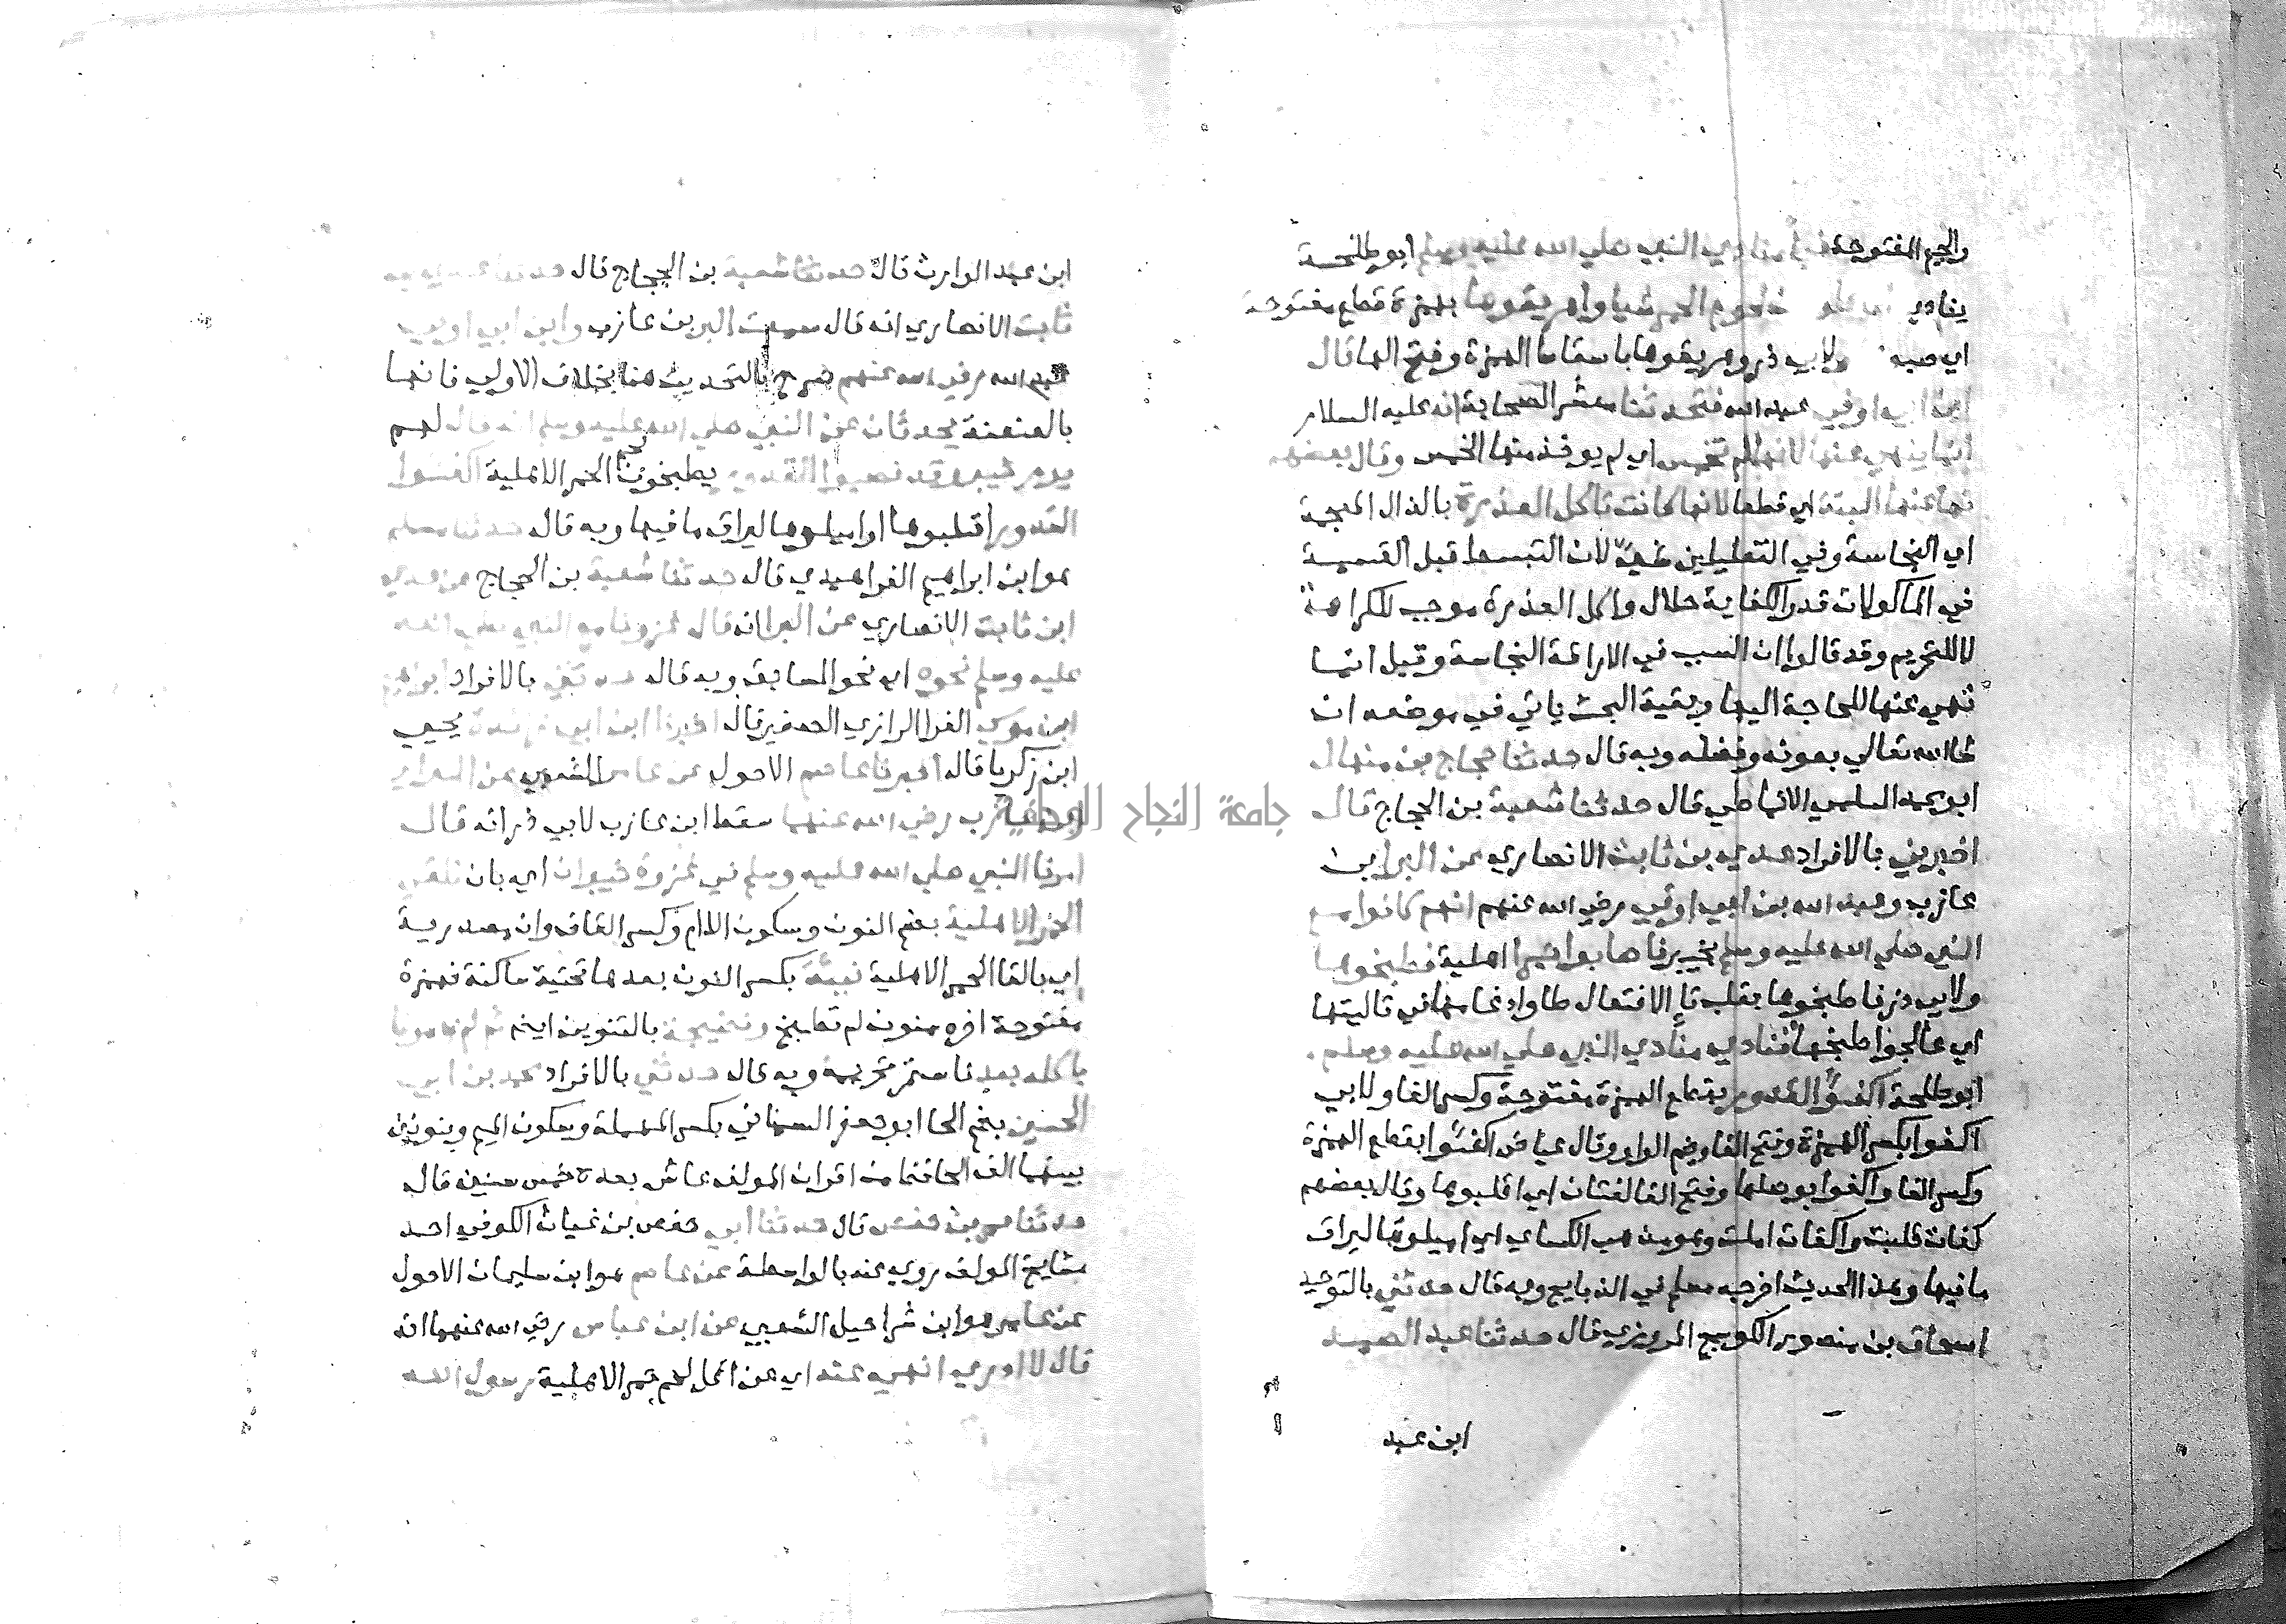 والجيم المفتوحة فجأ منادي النبي صلي الله عليه وسلم ابو طلحة
ينادي لحوم الحمر شيا واهريقوها بهمزة قطع مفتوحة
اي صبوه ولابي ذر وهريقوها باسقاط الهمزة وفتح الها قال
ابن ابي اوفي عبد الله فتحدثنا معشر الصحابة انه عليه السلام
انما ينهي عنها لانها لم تخمس اي لم يوخذ منها الخمس وقال بعضهم
نها عنها البتة اي قطعا لانها كانت تاكل العذرة بالذال المعجمة
اي النجاسة وفي التعليلين شيء لان التبسط قبل القسمة
في الماكولات قدر الكفاية حلال واكل العذرة موجب للكراهة
لا للتحريم وقد قالوا ان السبب في الاراقة النجاسة وقيل انما
نهي عنها للحاجة اليها وبقية البحث ياتي في موضعه ان
شا الله تعالي بعونه وفضله وبه قال حدثنا حجاج بن منهال
ابو محمد السلمي الانماطي قال حدثنا شعبة بن الحجاج قال
اخبرني بالافراد عدي بن ثابت الانصاري عن البرا بن
عازب وعبد الله بن ابي اوفي رضي الله عنهم انهم كانوا مع
النبي صلي الله عليه وسلم بخيبر فاصابوا حمرا اهلية فطبخوها
ولابي ذر فاطبخوها بقلب تا الافتعال طا وادغامها في تاليتها
اي عالجوا طبخها فنادي منادي النبي صلي الله عليه وسلم
ابو طلحة اكفئوا القدور بقطع الهمزة مفتوحة وكسر الفا ولابي
اكفوا بكسر الهمزة وفتح الفا وضم الواو وقال عياض اكفئوا بقطع الهمزة
وكسر الفا واكفوا بوصلها وفتح الفا لغتان اي اقلبوها وقال بعضهم
كفات قلبت واكفات املت وهو مذهب الكساي اي اميلوها ليراق
ما فيها وهذا الحديث اخرجه مسلم في الذبايح وبه قال حدثني بالتوحيد
اسحاق بن منصور الكوسج المروزي قال حدثنا عبد الصمد
ابن عبد
ابن عبد الوارث قال حدثنا شعبة بن الحجاج قال حدثنا عدي بن
ثابت الانصاري انه قال سمعت البر بن عازب وابن ابي اوفي
عبد الله رضي الله عنهم صرح بالتحديث هنا بخلاف الاولي فانها
بالعنعنة يحدثان عن النبي صلي الله عليه وسلم انه قال لهم
يوم خيبر وقد نصبوا القدور يطبخون لحم الحمر الاهلية اكفئوا
القدور اقلبوها او اميلوها ليراق ما فيها وبه قال حدثنا مسلم
هو ابن ابراهيم الفراهيدي قال حدثنا شعبة بن الحجاج عن عدي
ابن ثابت الانصاري عن البرا انه قال غزونا مع النبي صلي الله
عليه وسلم نحوه اي نحو السابق وبه قال حدثني بالافراد ابراهيم
ابن موسي الفرا الرازي الصغير قال اخبرنا ابن ابي زائدة يحيي
ابن زكريا قال اخبرنا عاصم الاحول عن عامر الشعبي عن البرا
ابن عازب رضي الله عنهما سقط ابن عازب لابي ذر انه قال
امرنا النبي صلي الله عليه وسلم في غزوة خيبر ان اي بان نلقي
الحمر الاهلية بضم النون وسكون اللام وكسر القاف وان مصدرية
اي بالقا الحمر الاهلية نيئة بكسر النون بعدها تحتية ساكنة فهمزة
مفتوحة اخره منون لم تطبخ ونضيجة بالتنوين ايضا ثم لم يامرنا
باكله بعد فاستمر تحريمه وبه قال حدثني بالافراد محمد بن ابي
الحسين بضم الحا ابو جعفر السمناني بكسر المهملة وسكون الميم ونونين
بينهما الف الحافظ من اقران المولف عاش بعده خمس سنين قال
حدثنا عمر بن حفص قال حدثنا ابي حفص بن غياث الكوفي احد
مشايخ المولف روي عنه بالواسطة عن عاصم هو ابن سليمان الاحول
عن عامر هو ابن شراحيل الشعبي عن ابن عباس رضي الله عنهما انه
قال لا ادري انهي عنه اي عن اكل لحم حمر الاهلية رسول الله
جامعة النجاح الوطنية